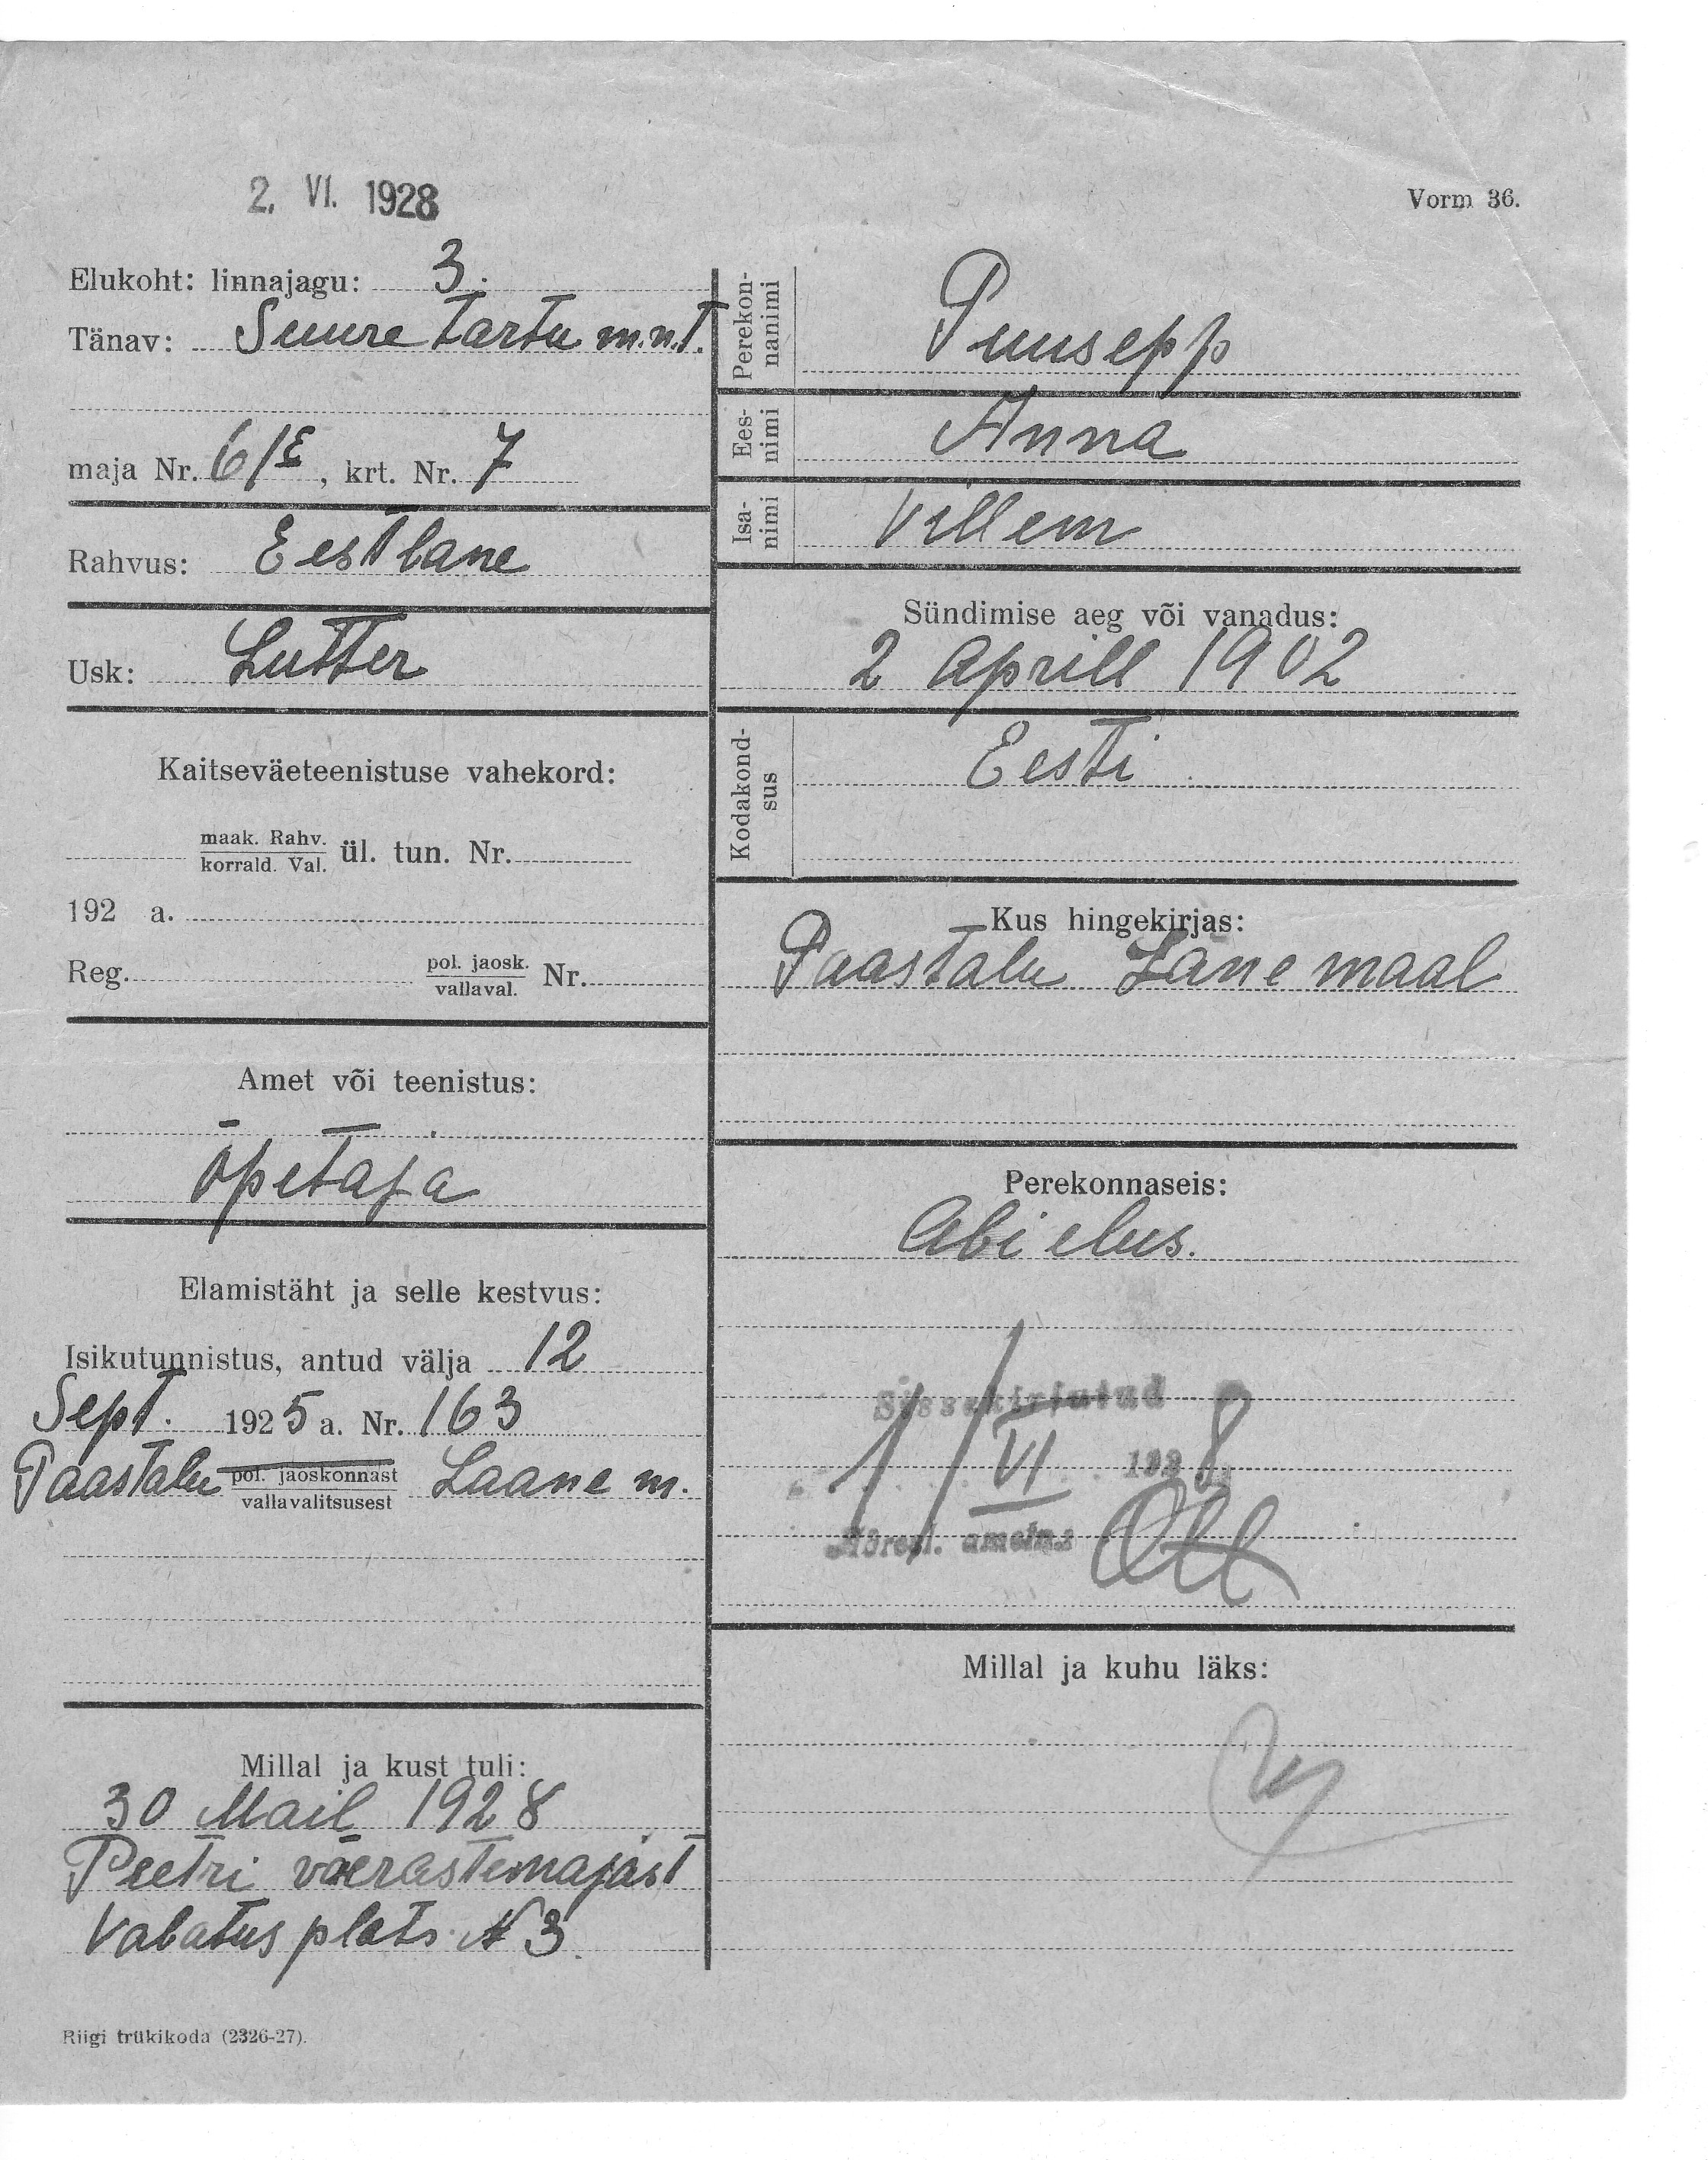 2. VI. 1928
Vorm 36.
Elukoht: linnajagu: 3.
Tänav: Suure Tartu m.n.t.
maja Nr. 6/E, krt. Nr. 7
Rahvus: Eestlane
Usk: Lutter
Kaitseväeteenistuse vahekord:
maak. Rahv.
korrald. Val. ül. tun. Nr.
192 a.
Reg. pol. jaosk.
vallaval. Nr.
Amet või teenistus:
Õpetaja
Elamistäht ja selle kestvus:
Isikutunnistus, antud välja 12
Sept. 1925 a. Nr. 163
Paastalu pol. jaoskonnast
vallavalitsusest Laane m.
Millal ja kust tuli:
30 Mail 1928
Peetri võerastemajast
Vabatus plats N 3.
Riigi trükikoda (2326-27).
Perekon-
nanimi
Puusepp
Ees-
nimi
Anna
Isa-
nimi
Villem
Sündimise aeg või vanadus:
2 Aprill 1902
Kodakond-
sus
Eesti
Kus hingekirjas:
Paastalu Läne maal
Perekonnaseis:
Abielus.
Sissekirjutud
1/VI 1928
ametn.
Millal ja kuhu läks: